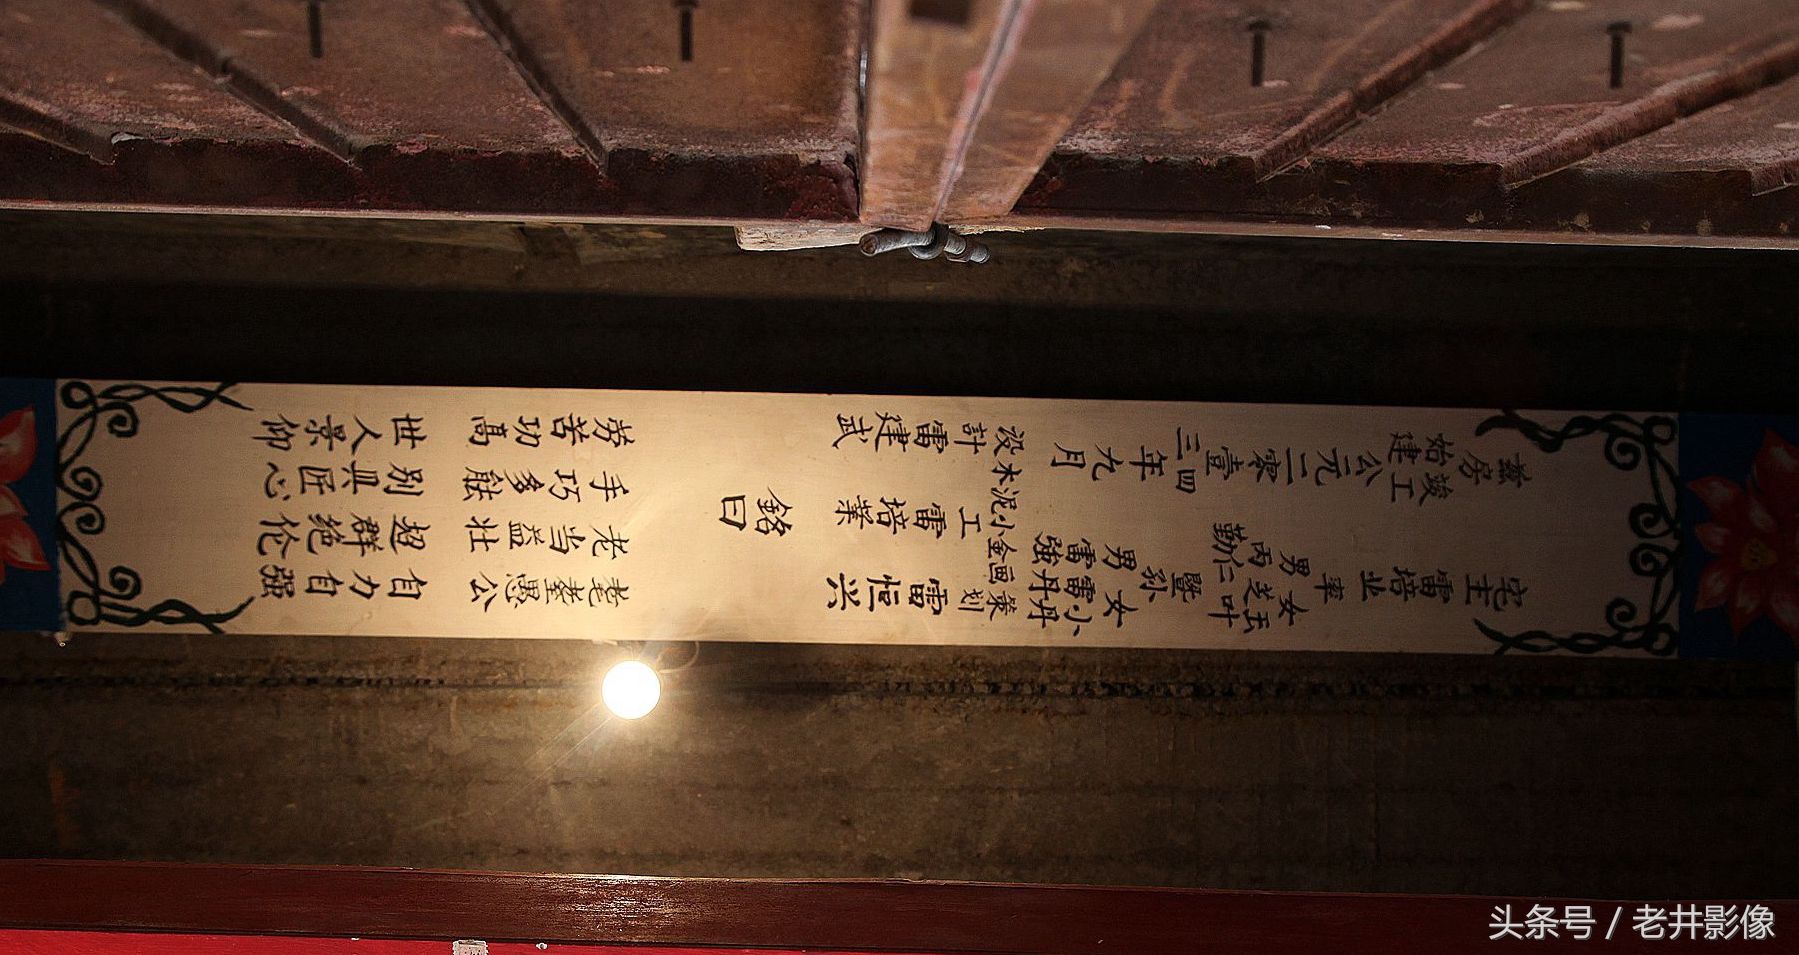 蓋房始建 公元二零壹三年九月
竣工 四
設計 雷建武
木泥小工 雷培業
宅主 雷培业 率 男 丙仁
勤
女 芝叶
玉
暨孙 男 雷強
女 雷丹丹
小丹
金画策划 雷恒兴
銘曰
劳苦功高 世人景仰
手巧多能 别具匠心
老当益壮 超群绝伦
耄耋愚公 自力自强
头条号 / 老井影像